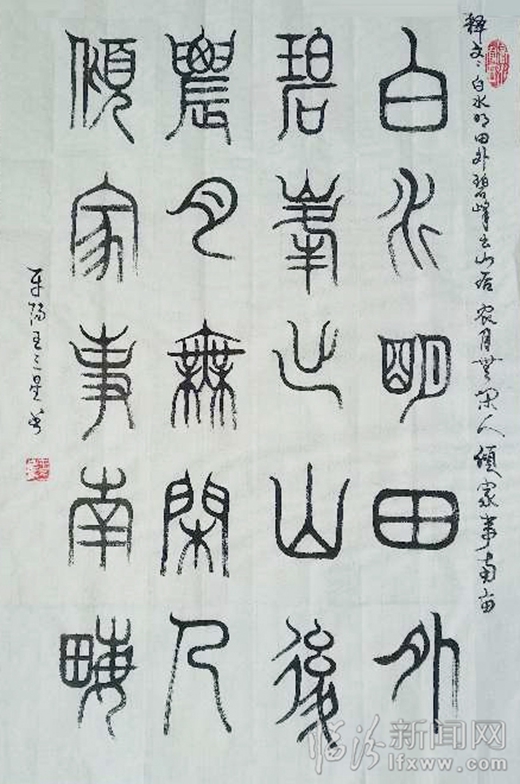 释文：白水明田外碧峰出山后农月無闲人倾家事南亩
白水明田外
碧峯出山後
農月無閑人
傾家事南畮
平阳王三星书
临汾新闻网
www.lfxww.com